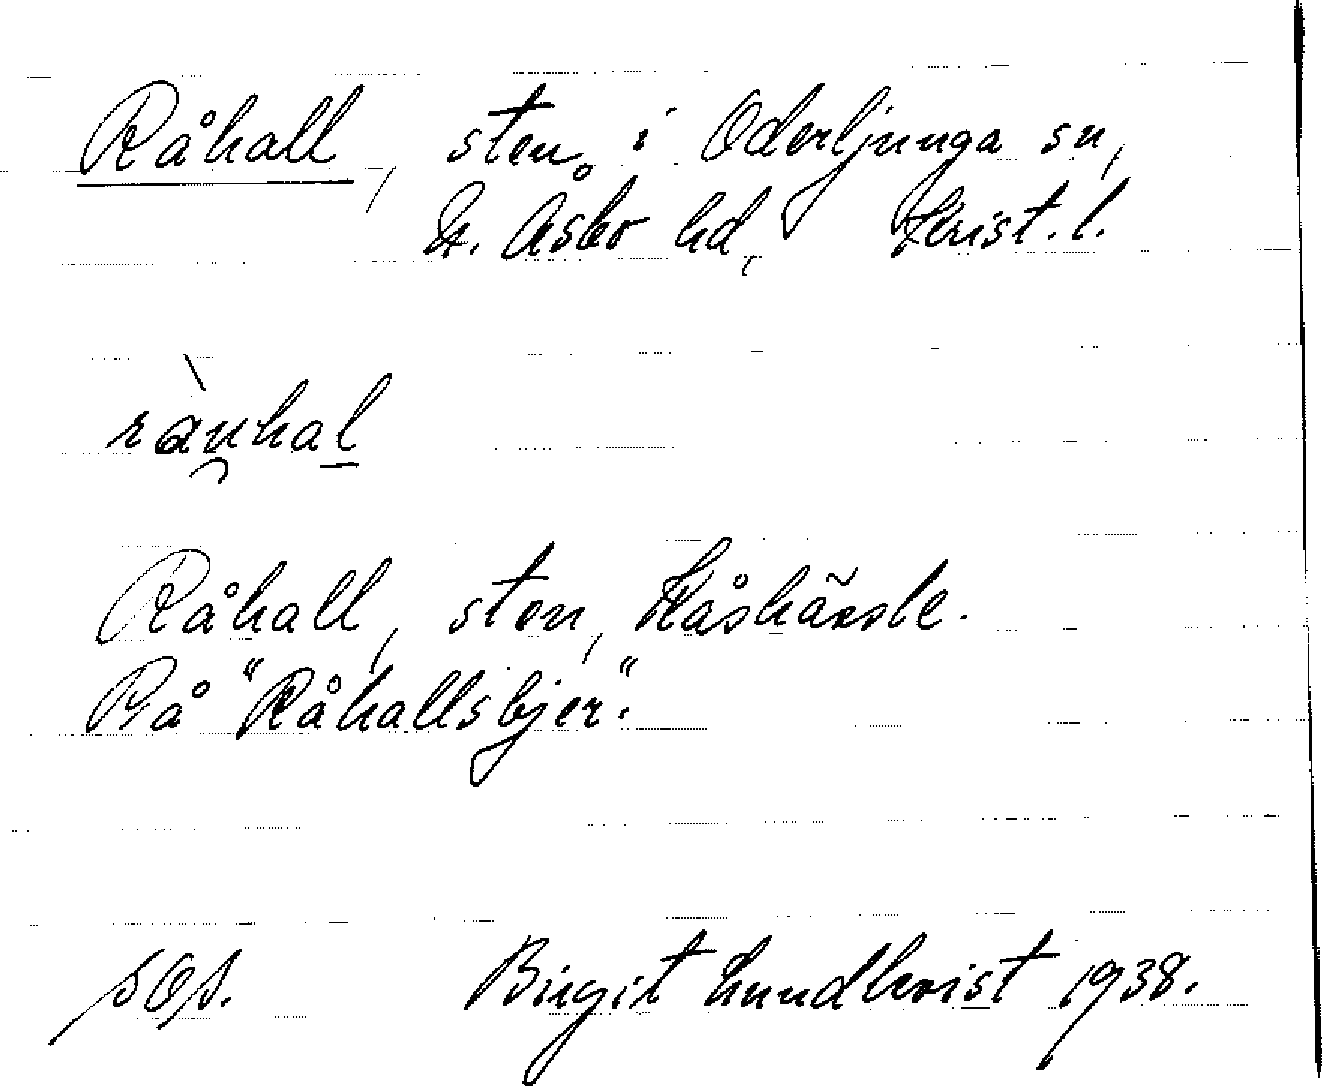 Råhall, sten i Oderljunga sn,
N. Åsbo hd, Krist. l.
ràuhal
Råhall, sten,
På "Råhallsbjer".
Birgit Lundkvist 1938.